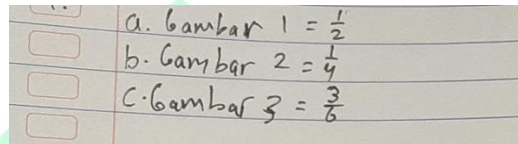 a. Gambar 1 = 1/2
b. Gambar 2 = 1/4
C. Gambar 3 = 3/6